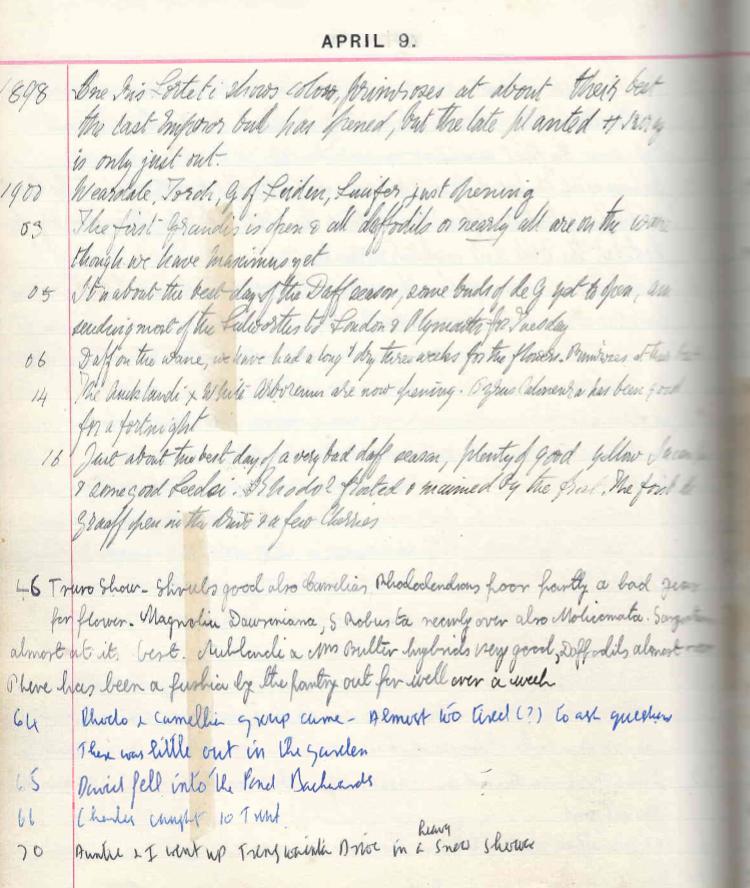 APRIL 9.
1898 One Iris Lorteti shows colour, primroses at about their best
the last Emperor bulb has opened, but the late planted
is only just out.
1900 Weardale, Torch, G of Leiden, Lucifer just opening
03 The first Grandis is open & all daffodils or nearly all are on the wane
though we have Maximus yet
05 It is about the best day of the Daff season, some buds of de G yet to open, am
sending most of the to London & Plymouth for Tuesday
06 Daff on the wane, we have had a long & dry three weeks for the flowers. Primroses at their best
14 The Aucklandi x White Arboreum are now opening. Pyrus has been good
for a fortnight
16 Just about the best day of a very bad daff season, plenty of good yellow
& some good Leedsi. Rhodos frosted & maimed by the frost. The first de
Graaff open in the Drive & a few Cherries
46 Truro Show - Shrubs good also Camelias Rhododendrons poor partly a bad year
for flower. Magnolia Dawsoniana, S Robusta nearly over also Molicomata.
almost at its best. Auklandi x Mrs Butler hybrids very good, Daffodils almost over
There has been a fushia by the pantry out for well over a week
64 Rhodo & Camellia group came - Almost too tired (?) to ask questions
There was little out in the garden
65 David fell into the Pond Backwards
66 Charles caught 10 Trout.
70 Auntie & I went up Tregwainton Drive in a Heavy Snow Shower